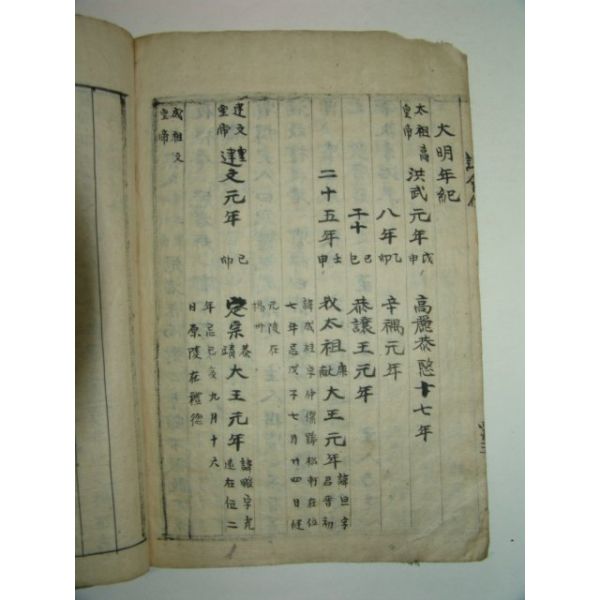 大明年紀
太祖高皇帝 洪武元年 戊申 高麗恭愍十七年
八年 乙卯 辛禑元年
二十 己巳 恭讓王元年
二十五年 壬申 我太祖康獻大王元年 諱旦字君晋初
諱成桂字仲潔號松軒在位
七年忌戊子七月廿四日健
元陵在
楊州
建文皇帝 建文元年 己卯 定宗恭靖大王元年 諱曔字光
遠在位二
年忌己亥九月十六
日厚陵在豊德
成祖文皇帝